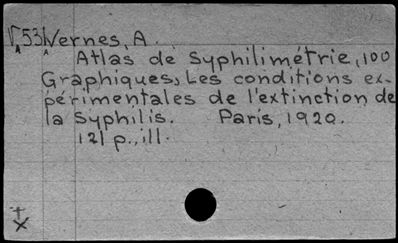 V.53 Vernes, A.
Atlas de Syphilimétrie, 100
Graphiques, Les conditions ex-
périmentales de l'extinction de
la Syphilis. Paris, 1920.
121 p., ill.